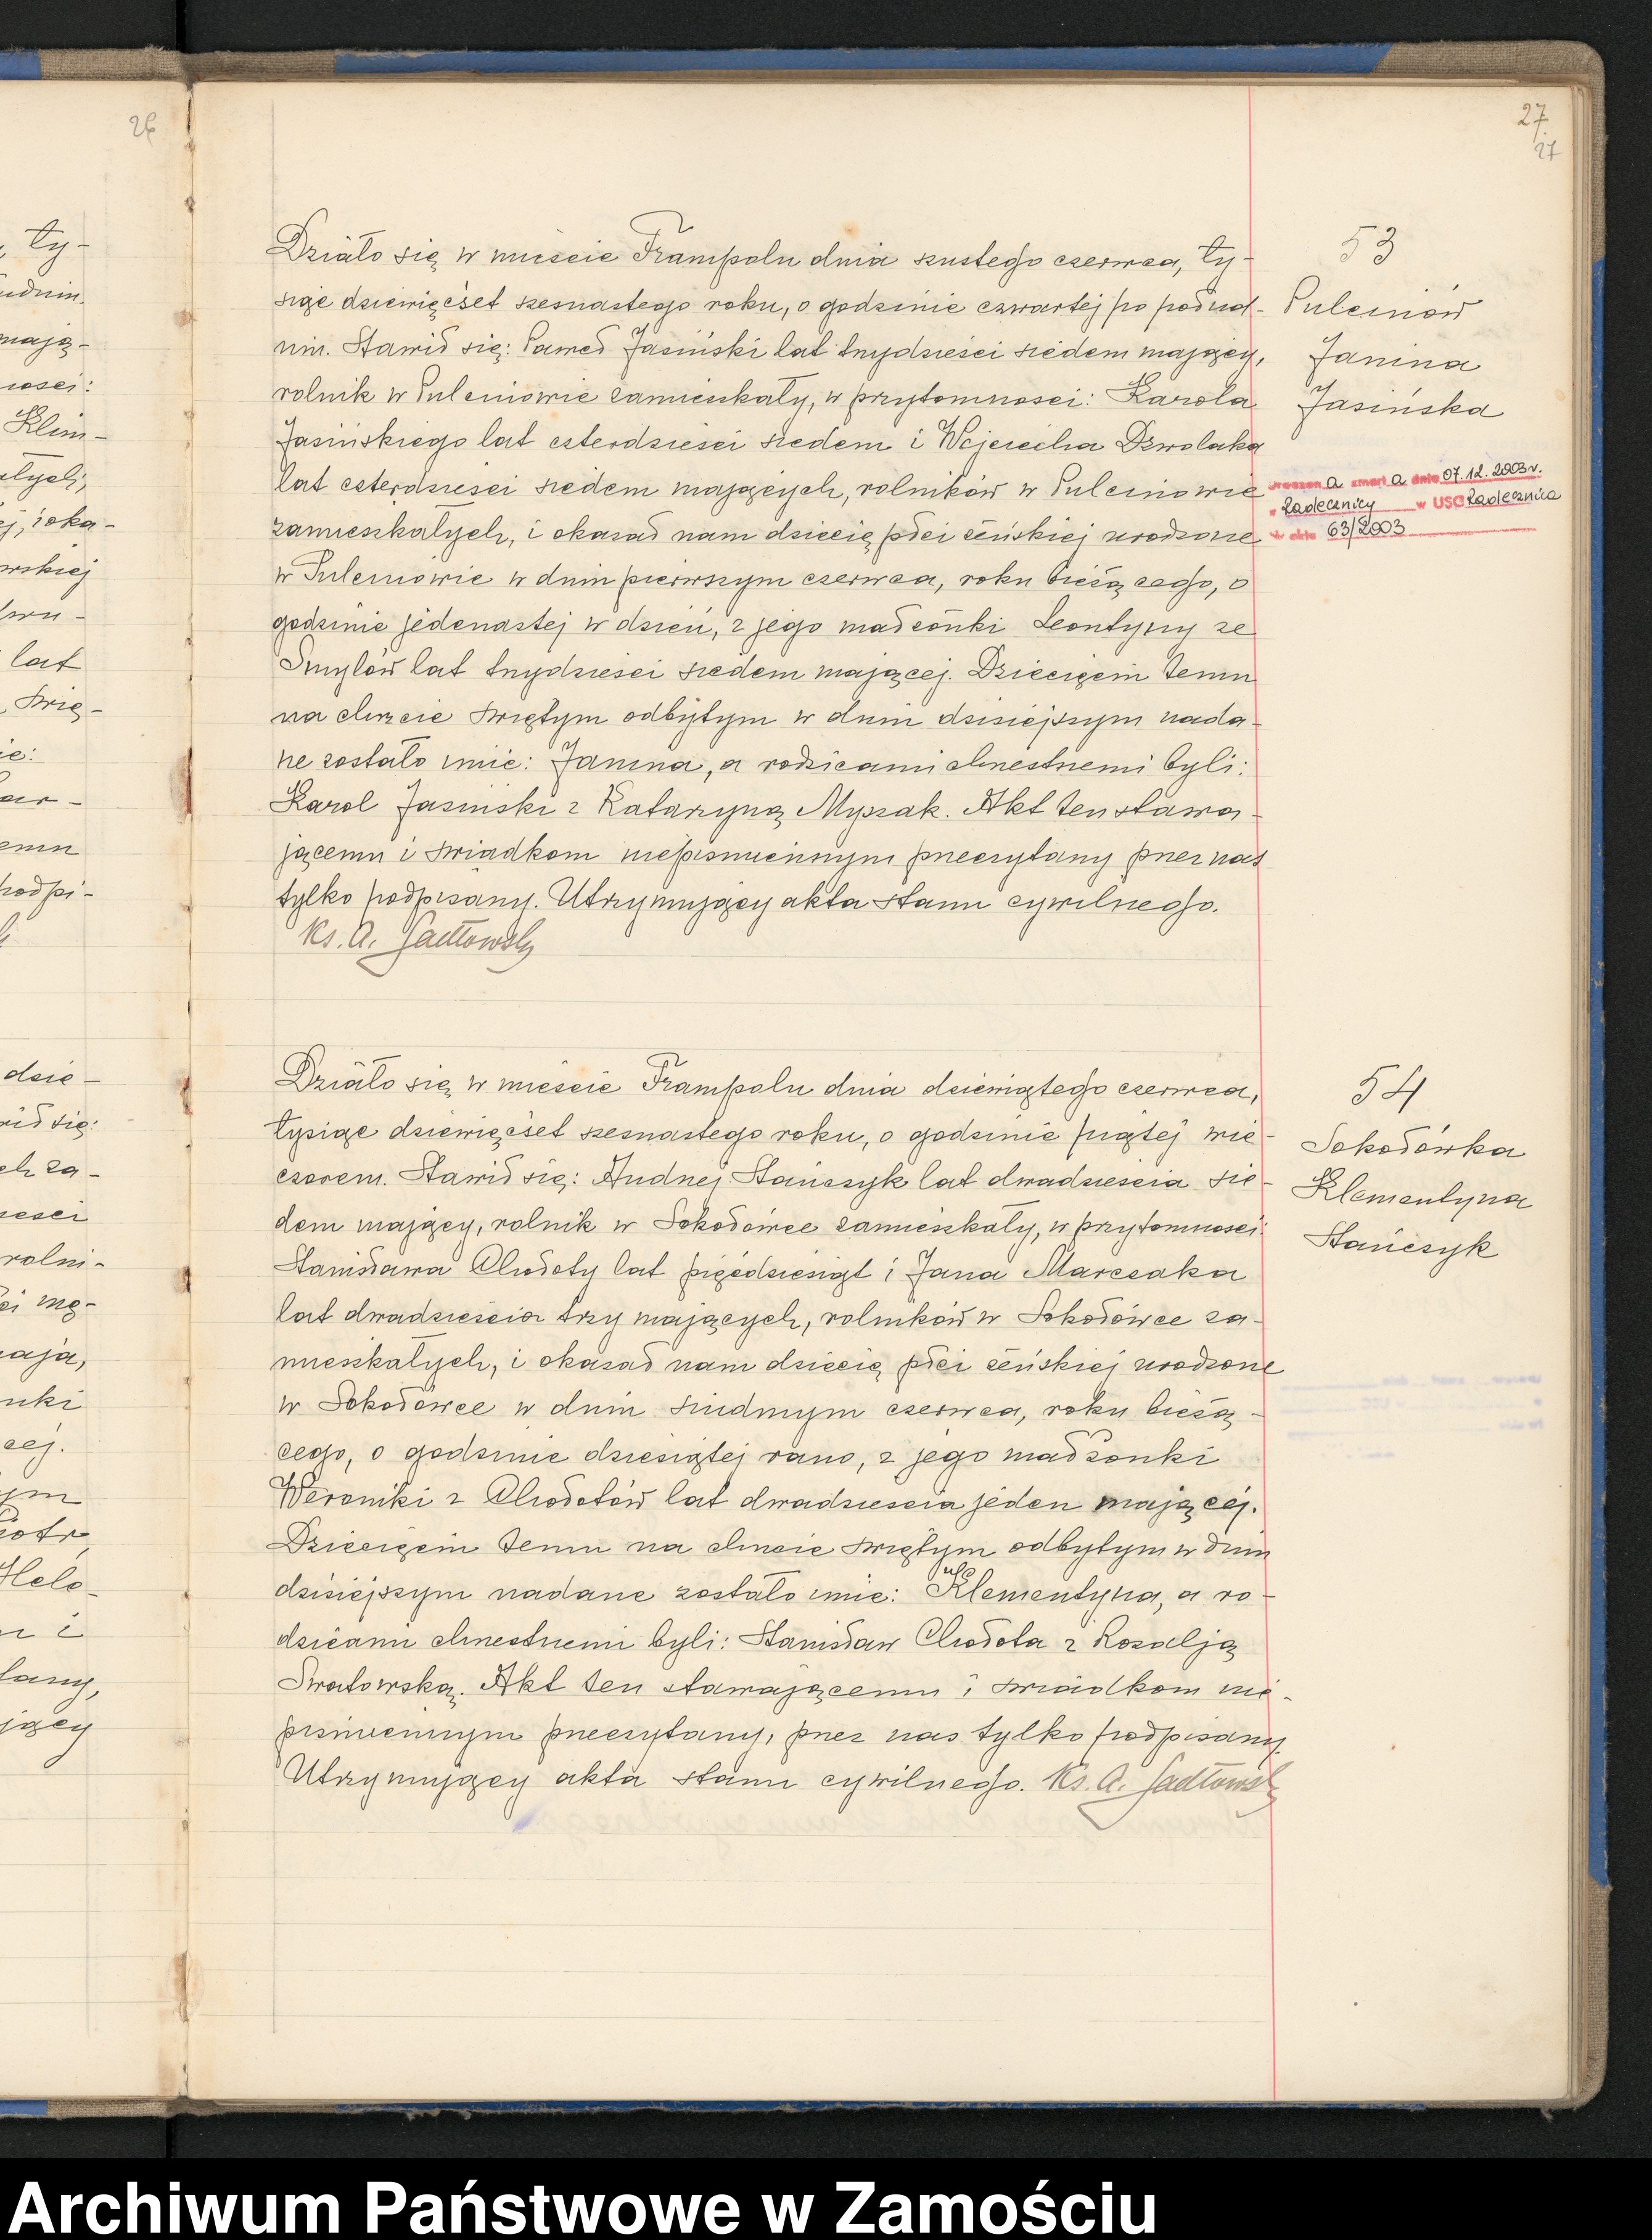 26
27
27
53
Działo się w mieście Frampolu dnia szustego czerwca, ty-
siąc dziewięćset szesnastego roku, o godzinie czwartej po połud-
niu. Stawił się: Paweł Jasiński lat trzydzieści siedem mający,
rolnik w Puleniowie zamieszkały, w przytomności: Karola
Jasińskiego lat czterdzieści siedem i Wojciecha Dzwolaka
lat czterdzieści siedem mających, rolników w Puleniowie
zamieszkałych, i okazał nam dziecię płci żeńskiej urodzone
w Puleniowie w dniu pierwszym czerwca, roku bieżącego, o
godzinie jedenastej w dzień, z jego małżonki Leontyny ze
Smyłów lat trzydzieści siedem mającej. Dziecięciu temu
na chrzcie świętym odbytym w dniu dzisiejszym nada-
ne zostało imie: Janina, a rodzicami chrzestnemi byli:
Karol Jasiński z Katarzyną Myszak. Akt ten stawa-
jącemu i świadkom niepiśmiennym przeczytany przez nas
tylko podpisany. Utrzymujący akta stanu cywilnego.
Ks. A.
Puleniów
Janina
Jasińska
a zmarł a dnia 07.12.2003 r.
Radecznicy w USC Radecznica
63/2003
54
Działo się w mieście Frampolu dnia dziewiątego czerwca,
tysiąc dziewięćset szesnastego roku, o godzinie piątej wie-
czorem. Stawił się: Andrzej Stańczyk lat dwadzieścia sie-
dem mający, rolnik w Sokołówce zamieszkały, w przytomności
Stanisława Chodoty lat pięćdziesiąt i Jana Marczaka
lat dwadzieścia trzy mających, rolników w Sokołówce za-
mieszkałych, i okazał nam dziecię płci żeńskiej urodzone
w Sokołówce w dniu siudmym czerwca, roku bieżą-
cego, o godzinie dziesiątej rano, z jego małżonki
Weroniki z Chodotów lat dwadzieścia jeden mającej.
Dziecięciu temu na chrzcie świętym odbytym w dniu
dzisiejszym nadane zostało imie: Klementyna, a ro-
dzicami chrzestnemi byli: Stanisław Chodota z Rozalją
Swatowską. Akt ten stawającemu i świadkom nie-
piśmiennym przeczytany, przez nas tylko podpisany
Utrzymujący akta stanu cywilnego. Ks. A.
Sokołówka
Klementyna
Stańczyk
Archiwum Państwowe w Zamościu